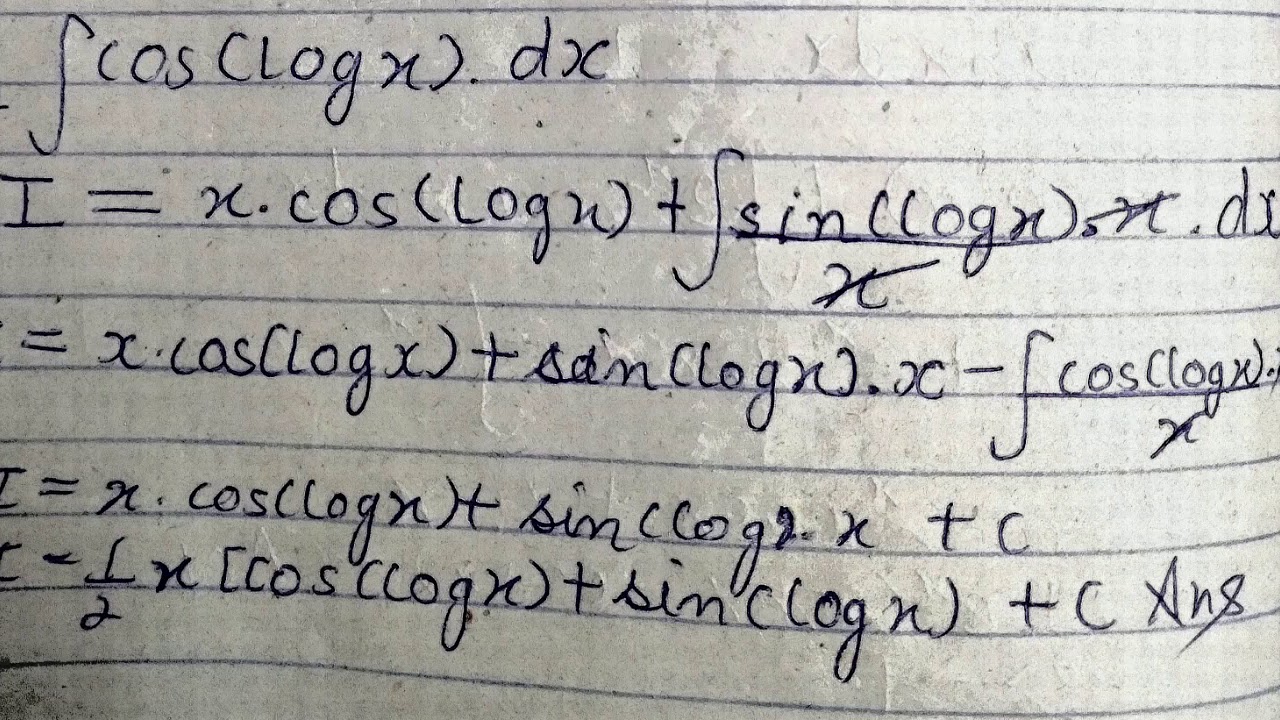 ∫cos(logx). dx
I = x.cos(logx) + ∫sin(logx).x . dx
x
= x.cos(logx) + sin(logx).x - ∫cos(logx).
x
I = x. cos(logx) + sin(log x. x + C
I = 1/2 x [cos(logx) + sin(logx) + C Ans